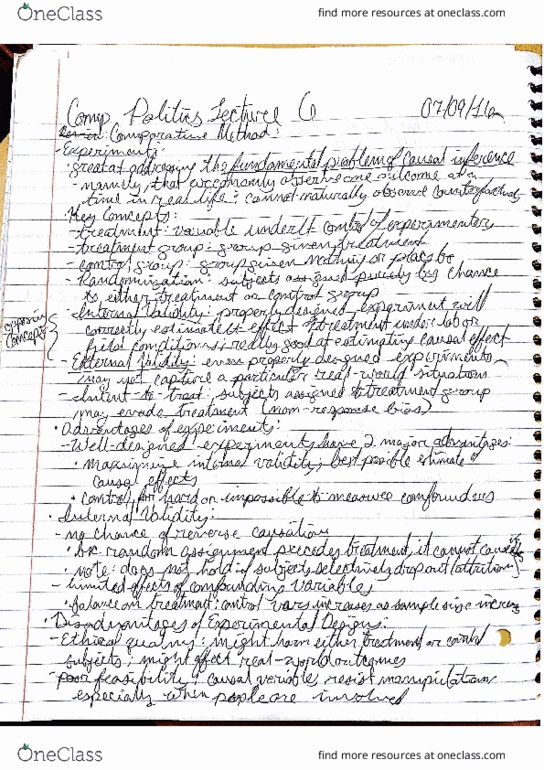 OneClass
find more resources at oneclass.com
Comp Politics Lecture 6 07/09/16
Comparative Method:
- Experiments:
· great at addressing the fundamental problem of causal inference
- namely that we can only observe one outcome at a
time in real life; cannot naturally observe counterfactual
· Key Concepts:
- treatment: variable under control of experimenters
- treatment group: group given treatment
- control group: group given nothing or placebo
- Randomization: subjects assigned purely by chance
to either treatment or control group
- Internal Validity: properly designed experiment will
correctly estimate effect of treatment under lab or
field conditions; really good at estimating causal effect
opposing concepts
- External Validity: even properly designed experiments
may not capture a particular real-world situation
- Intent-to-treat: subjects assigned to treatment group
may evade treatment (non-response bias)
· Advantages of experiments:
- Well-designed experiments have 2 major advantages:
· maximize internal validity; best possible estimate of
causal effects
· control for hard or impossible to measure confounders
· Internal Validity:
- no chance of reverse causation
· bc random assignment precedes treatment, it cannot cause
· note: does not hold if subjects selectively drop out (attrition)
- limited effects of compounding variables
· balance on treatment; control vars increases as sample size increases
· Disadvantages of Experimental Designs:
- Ethical qualms: might harm either treatment or control
subjects; might affect real-world outcomes
- poor feasibility: causal variables resist manipulation
especially when people are involved
OneClass
find more resources at oneclass.com